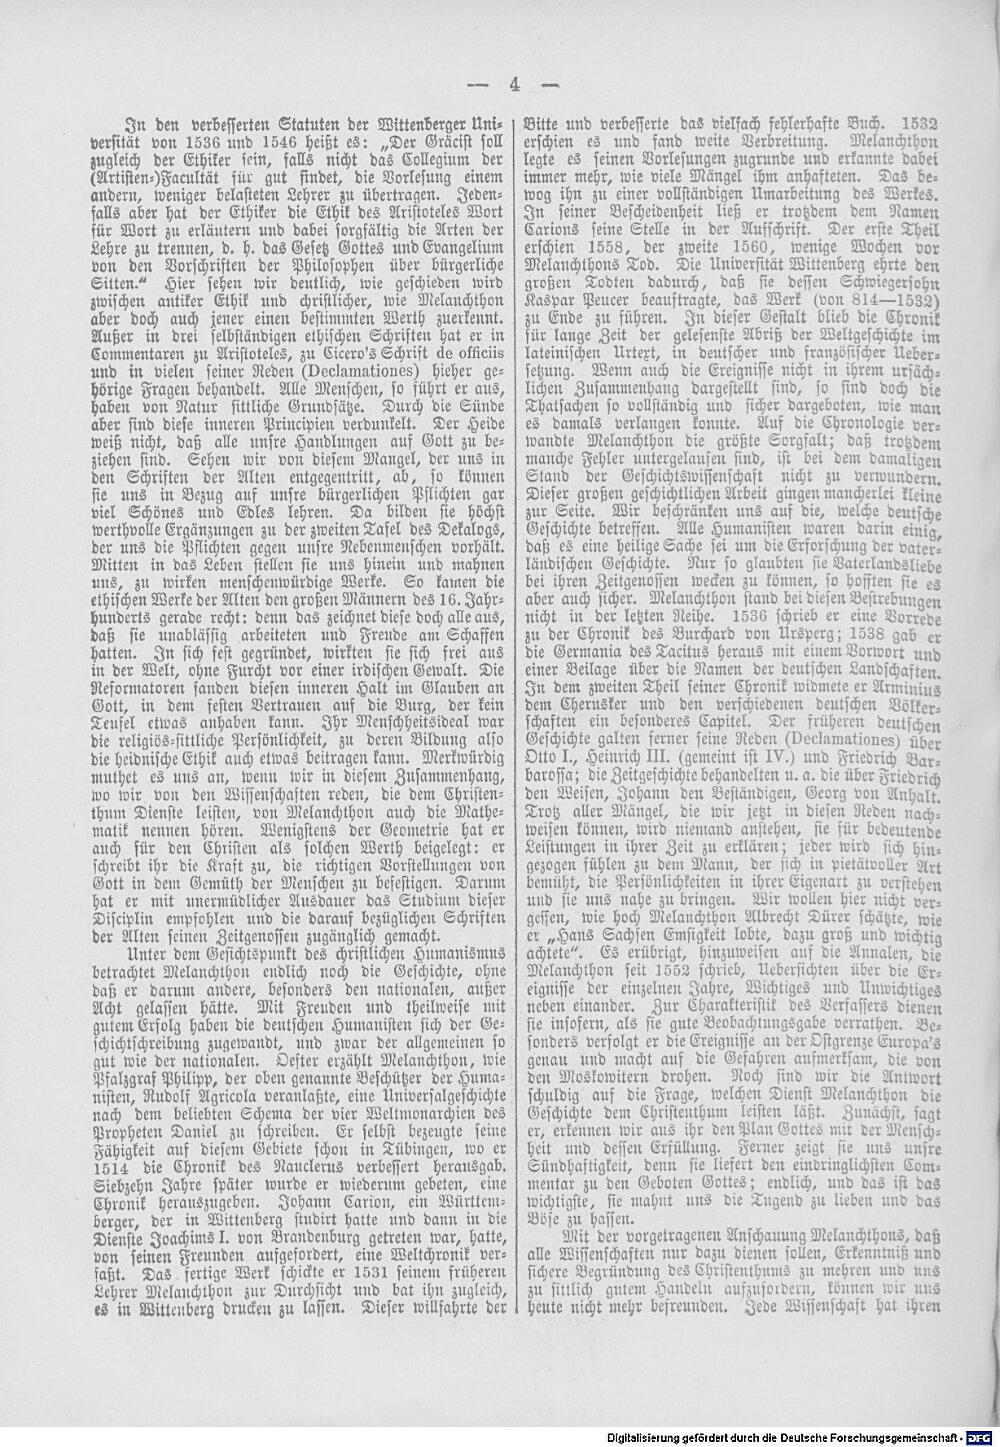 — 4 —
In den verbesserten Statuten der Wittenberger Uni-
versität von 1536 und 1546 heißt es: „Der Gräcist soll
zugleich der Ethiker sein, falls nicht das Collegium der
(Artisten-)Facultät für gut findet, die Vorlesung einem
andern, weniger belasteten Lehrer zu übertragen. Jeden-
falls aber hat der Ethiker die Ethik des Aristoteles Wort
für Wort zu erläutern und dabei sorgfältig die Arten der
Lehre zu trennen, d. h. das Gesetz Gottes und Evangelium
von den Vorschriften der Philosophen über bürgerliche
Sitten.“ Hier sehen wir deutlich, wie geschieden wird
zwischen antiker Ethik und christlicher, wie Melanchthon
aber doch auch jener einen bestimmten Werth zuerkennt.
Außer in drei selbständigen ethischen Schriften hat er in
Commentaren zu Aristoteles, zu Cicero's Schrift de officiis
und in vielen seiner Reden (Declamationes) hieher ge-
hörige Fragen behandelt. Alle Menschen, so führt er aus,
haben von Natur sittliche Grundsätze. Durch die Sünde
aber sind diese inneren Principien verdunkelt. Der Heide
weiß nicht, daß alle unsre Handlungen auf Gott zu be-
ziehen sind. Sehen wir von diesem Mangel, der uns in
den Schriften der Alten entgegentritt, ab, so können
sie uns in Bezug auf unsre bürgerlichen Pflichten gar
viel Schönes und Edles lehren. Da bilden sie höchst
werthvolle Ergänzungen zu der zweiten Tafel des Dekalogs,
der uns die Pflichten gegen unsre Nebenmenschen vorhält.
Mitten in das Leben stellen sie uns hinein und mahnen
uns, zu wirken menschenwürdige Werke. So kamen die
ethischen Werke der Alten den großen Männern des 16. Jahr-
hunderts gerade recht: denn das zeichnet diese doch alle aus,
daß sie unablässig arbeiteten und Freude am Schaffen
hatten. In sich fest gegründet, wirkten sie sich frei aus
in der Welt, ohne Furcht vor einer irdischen Gewalt. Die
Reformatoren fanden diesen inneren Halt im Glauben an
Gott, in dem festen Vertrauen auf die Burg, der kein
Teufel etwas anhaben kann. Ihr Menschheitsideal war
die religiös-sittliche Persönlichkeit, zu deren Bildung also
die heidnische Ethik auch etwas beitragen kann. Merkwürdig
muthet es uns an, wenn wir in diesem Zusammenhang,
wo wir von den Wissenschaften reden, die dem Christen-
thum Dienste leisten, von Melanchthon auch die Mathe-
matik nennen hören. Wenigstens der Geometrie hat er
auch für den Christen als solchen Werth beigelegt: er
schreibt ihr die Kraft zu, die richtigen Vorstellungen von
Gott in dem Gemüth der Menschen zu befestigen. Darum
hat er mit unermüdlicher Ausdauer das Studium dieser
Disciplin empfohlen und die darauf bezüglichen Schriften
der Alten seinen Zeitgenossen zugänglich gemacht.
Unter dem Gesichtspunkt des christlichen Humanismus
betrachtet Melanchthon endlich noch die Geschichte, ohne
daß er darum andere, besonders den nationalen, außer
Acht gelassen hätte. Mit Freuden und theilweise mit
gutem Erfolg haben die deutschen Humanisten sich der Ge-
schichtschreibung zugewandt, und zwar der allgemeinen so
gut wie der nationalen. Oefter erzählt Melanchthon, wie
Pfalzgraf Philipp, der oben genannte Beschützer der Huma-
nisten, Rudolf Agricola veranlaßte, eine Universalgeschichte
nach dem beliebten Schema der vier Weltmonarchien des
Propheten Daniel zu schreiben. Er selbst bezeugte seine
Fähigkeit auf diesem Gebiete schon in Tübingen, wo er
1514 die Chronik des Nauclerus verbessert herausgab.
Siebzehn Jahre später wurde er wiederum gebeten, eine
Chronik herauszugeben. Johann Carion, ein Württem-
berger, der in Wittenberg studirt hatte und dann in die
Dienste Joachims I. von Brandenburg getreten war, hatte,
von seinen Freunden aufgefordert, eine Weltchronik ver-
faßt. Das fertige Werk schickte er 1531 seinem früheren
Lehrer Melanchthon zur Durchsicht und bat ihn zugleich,
es in Wittenberg drucken zu lassen. Dieser willfahrte der
Bitte und verbesserte das vielfach fehlerhafte Buch. 1532
erschien es und fand weite Verbreitung. Melanchthon
legte es seinen Vorlesungen zugrunde und erkannte dabei
immer mehr, wie viele Mängel ihm anhafteten. Das be-
wog ihn zu einer vollständigen Umarbeitung des Werkes.
In seiner Bescheidenheit ließ er trotzdem dem Namen
Carions seine Stelle in der Aufschrift. Der erste Theil
erschien 1558, der zweite 1560, wenige Wochen vor
Melanchthons Tod. Die Universität Wittenberg ehrte den
großen Todten dadurch, daß sie dessen Schwiegersohn
Kaspar Peucer beauftragte, das Werk (von 814—1532)
zu Ende zu führen. In dieser Gestalt blieb die Chronik
für lange Zeit der gelesenste Abriß der Weltgeschichte im
lateinischen Urtext, in deutscher und französischer Ueber-
setzung. Wenn auch die Ereignisse nicht in ihrem ursäch-
lichen Zusammenhang dargestellt sind, so sind doch die
Thatsachen so vollständig und sicher dargeboten, wie man
es damals verlangen konnte. Auf die Chronologie ver-
wandte Melanchthon die größte Sorgfalt; daß trotzdem
manche Fehler untergelaufen sind, ist bei dem damaligen
Stand der Geschichtswissenschaft nicht zu verwundern.
Dieser großen geschichtlichen Arbeit gingen mancherlei kleine
zur Seite. Wir beschränken uns auf die, welche deutsche
Geschichte betreffen. Alle Humanisten waren darin einig,
daß es eine heilige Sache sei um die Erforschung der vater-
ländischen Geschichte. Nur so glaubten sie Vaterlandsliebe
bei ihren Zeitgenossen wecken zu können, so hofften sie es
aber auch sicher. Melanchthon stand bei diesen Bestrebungen
nicht in der letzten Reihe. 1536 schrieb er eine Vorrede
zu der Chronik des Burchard von Ursperg; 1538 gab er
die Germania des Tacitus heraus mit einem Vorwort und
einer Beilage über die Namen der deutschen Landschaften.
In dem zweiten Theil seiner Chronik widmete er Arminius
dem Cherusker und den verschiedenen deutschen Völker-
schaften ein besonderes Capitel. Der früheren deutschen
Geschichte galten ferner seine Reden (Declamationes) über
Otto I., Heinrich III. (gemeint ist IV.) und Friedrich Bar-
barossa; die Zeitgeschichte behandelten u. a. die über Friedrich
den Weisen, Johann den Beständigen, Georg von Anhalt.
Trotz aller Mängel, die wir jetzt in diesen Reden nach-
weisen können, wird niemand anstehen, sie für bedeutende
Leistungen in ihrer Zeit zu erklären; jeder wird sich hin-
gezogen fühlen zu dem Mann, der sich in pietätvoller Art
bemüht, die Persönlichkeiten in ihrer Eigenart zu verstehen
und sie uns nahe zu bringen. Wir wollen hier nicht ver-
gessen, wie hoch Melanchthon Albrecht Dürer schätzte, wie
er „Hans Sachsen Emsigkeit lobte, dazu groß und wichtig
achtete“. Es erübrigt, hinzuweisen auf die Annalen, die
Melanchthon seit 1552 schrieb, Uebersichten über die Er-
eignisse der einzelnen Jahre, Wichtiges und Unwichtiges
neben einander. Zur Charakteristik des Verfassers dienen
sie insofern, als sie gute Beobachtungsgabe verrathen. Be-
sonders verfolgt er die Ereignisse an der Ostgrenze Europa's
genau und macht auf die Gefahren aufmerksam, die von
den Moskowitern drohen. Noch sind wir die Antwort
schuldig auf die Frage, welchen Dienst Melanchthon die
Geschichte dem Christenthum leisten läßt. Zunächst, sagt
er, erkennen wir aus ihr den Plan Gottes mit der Mensch-
heit und dessen Erfüllung. Ferner zeigt sie uns unsre
Sündhaftigkeit, denn sie liefert den eindringlichsten Com-
mentar zu den Geboten Gottes; endlich, und das ist das
wichtigste, sie mahnt uns die Tugend zu lieben und das
Böse zu hassen.
Mit der vorgetragenen Anschauung Melanchthons, daß
alle Wissenschaften nur dazu dienen sollen, Erkenntniß und
sichere Begründung des Christenthums zu mehren und uns
zu sittlich gutem Handeln aufzufordern, können wir uns
heute nicht mehr befreunden. Jede Wissenschaft hat ihren
Digitalisierung gefördert durch die Deutsche Forschungsgemeinschaft - DFG